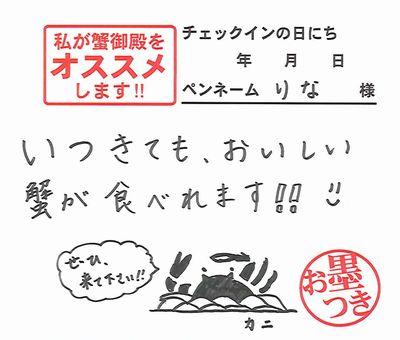 私が蟹御殿を
オススメ
します!!
チェックインの日にち
年 月 日
ペンネーム りな 様
いつきても、おいしい
蟹が食べれます!! :)
ぜひ、
来て下さい!!
カニ
お墨つき